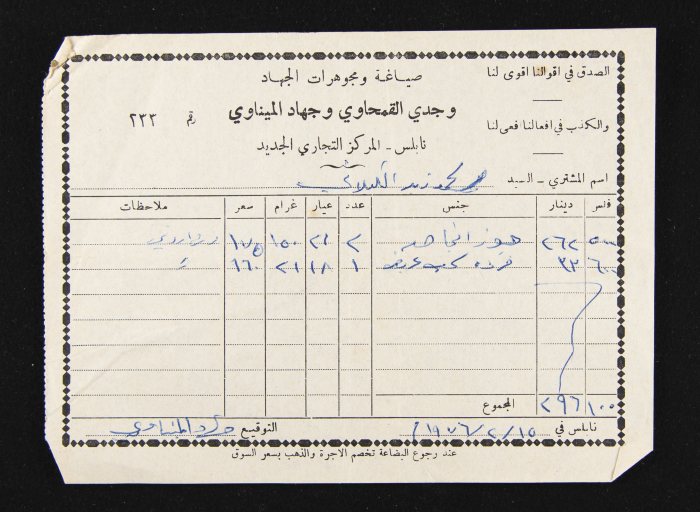 الصدق في اقوالنا اقوى لنا
والكذب في افعالنا افعى لنا
صياغة ومجوهرات الجهاد
وجدي القمحاوي وجهاد الميناوي
نابلس - المركز التجاري الجديد
رقم ٢٣٣
اسم المشتري - السيد
فلس دينار جنس عدد عيار غرام سعر ملاحظات
٥٠٠ ٢٦٢ ٢ ٢١ ١٥٠ ١٧٥
٦٠٠ ٣٣ ١ ١٨ ٢١ ١٦٠
المجموع ٢٩٦ ١٠٠
نابلس في ١٥/ ٢/ ١٩٧٦ التوقيع جهاد الميناوي
عند رجوع البضاعة تخصم الاجرة والذهب بسعر السوق